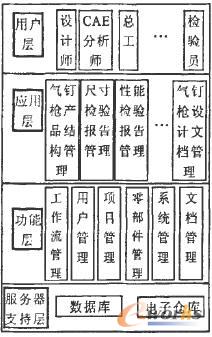 用户层
设计师
CAE分析师
总工
…
检验员
应用层
气钉枪产品结构管理
尺寸检验报告管理
性能检验报告管理
…
气钉枪设计文档管理
功能层
工作流管理
用户管理
项目管理
零部件管理
系统管理
文档管理
服务器支持层
数据库
电子仓库